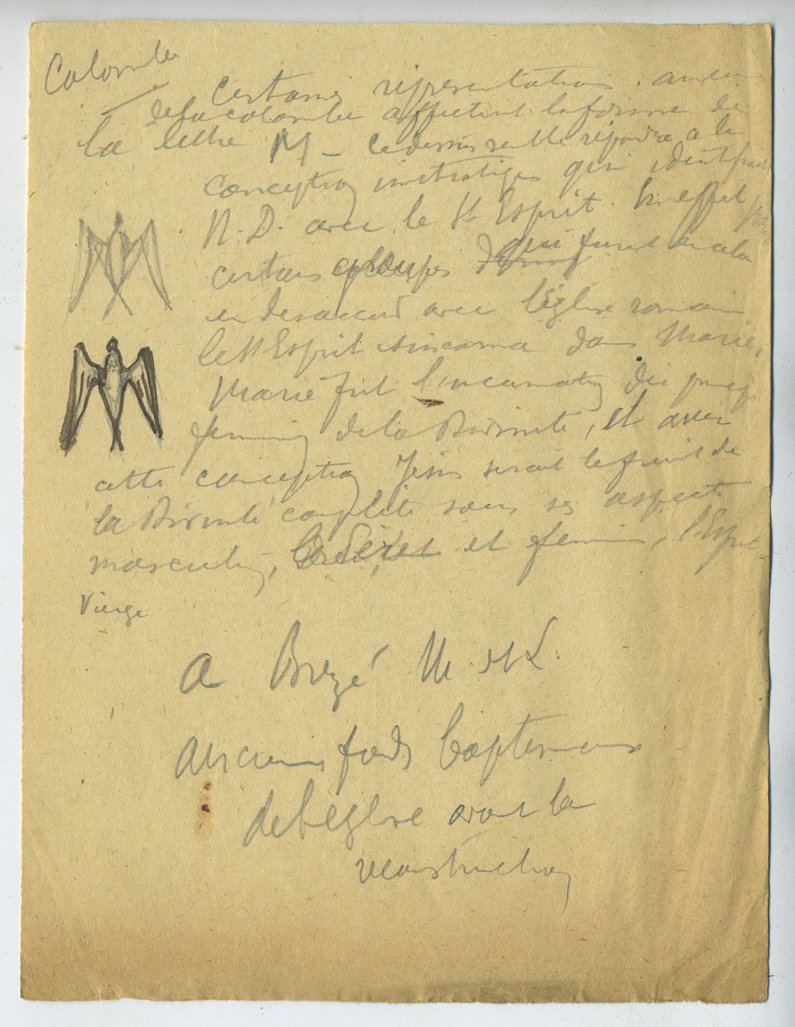 Colombe
Certaines représentations
de la colombe affectent la forme de
la lettre M – ce dessin semble répondre à la
conception initiatique qui identifiait
N. D. avec le St Esprit. En effet pour
certains groupes qui furent en cela
en désaccord avec l'église romaine
le St Esprit s'incarna dans Marie,
Marie fut l'incarnation du principe
féminin de la Divinité, et avec
cette conception Jésus serait le fruit de
la Divinité complète sous ses aspects
masculin, et féminin, l'Esprit-
Vierge
A Brezé M. et L.
anciens fonds baptismaux
de l'église avant la
reconstruction